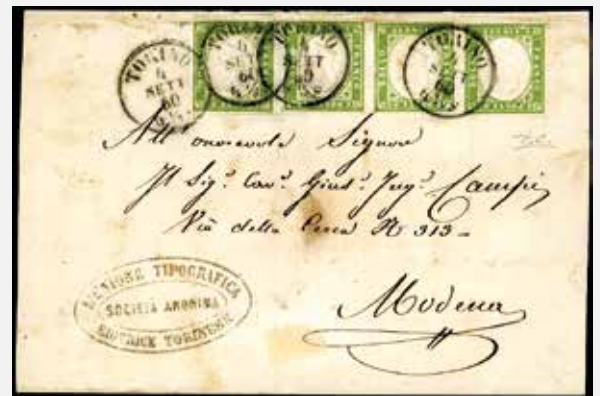 TORINO
4
SETT
60
TORINO
4
SETT
60
TORINO
4
SETT
60
TORINO
4
SETT
60
All' onorevole Signore
Il Sig.r Cav.r Ing.r Campi
Via della Cerca N 313 -
Modena
L'UNIONE TIPOGRAFICA
SOCIETÀ ANONIMA
EDITRICE TORINESE